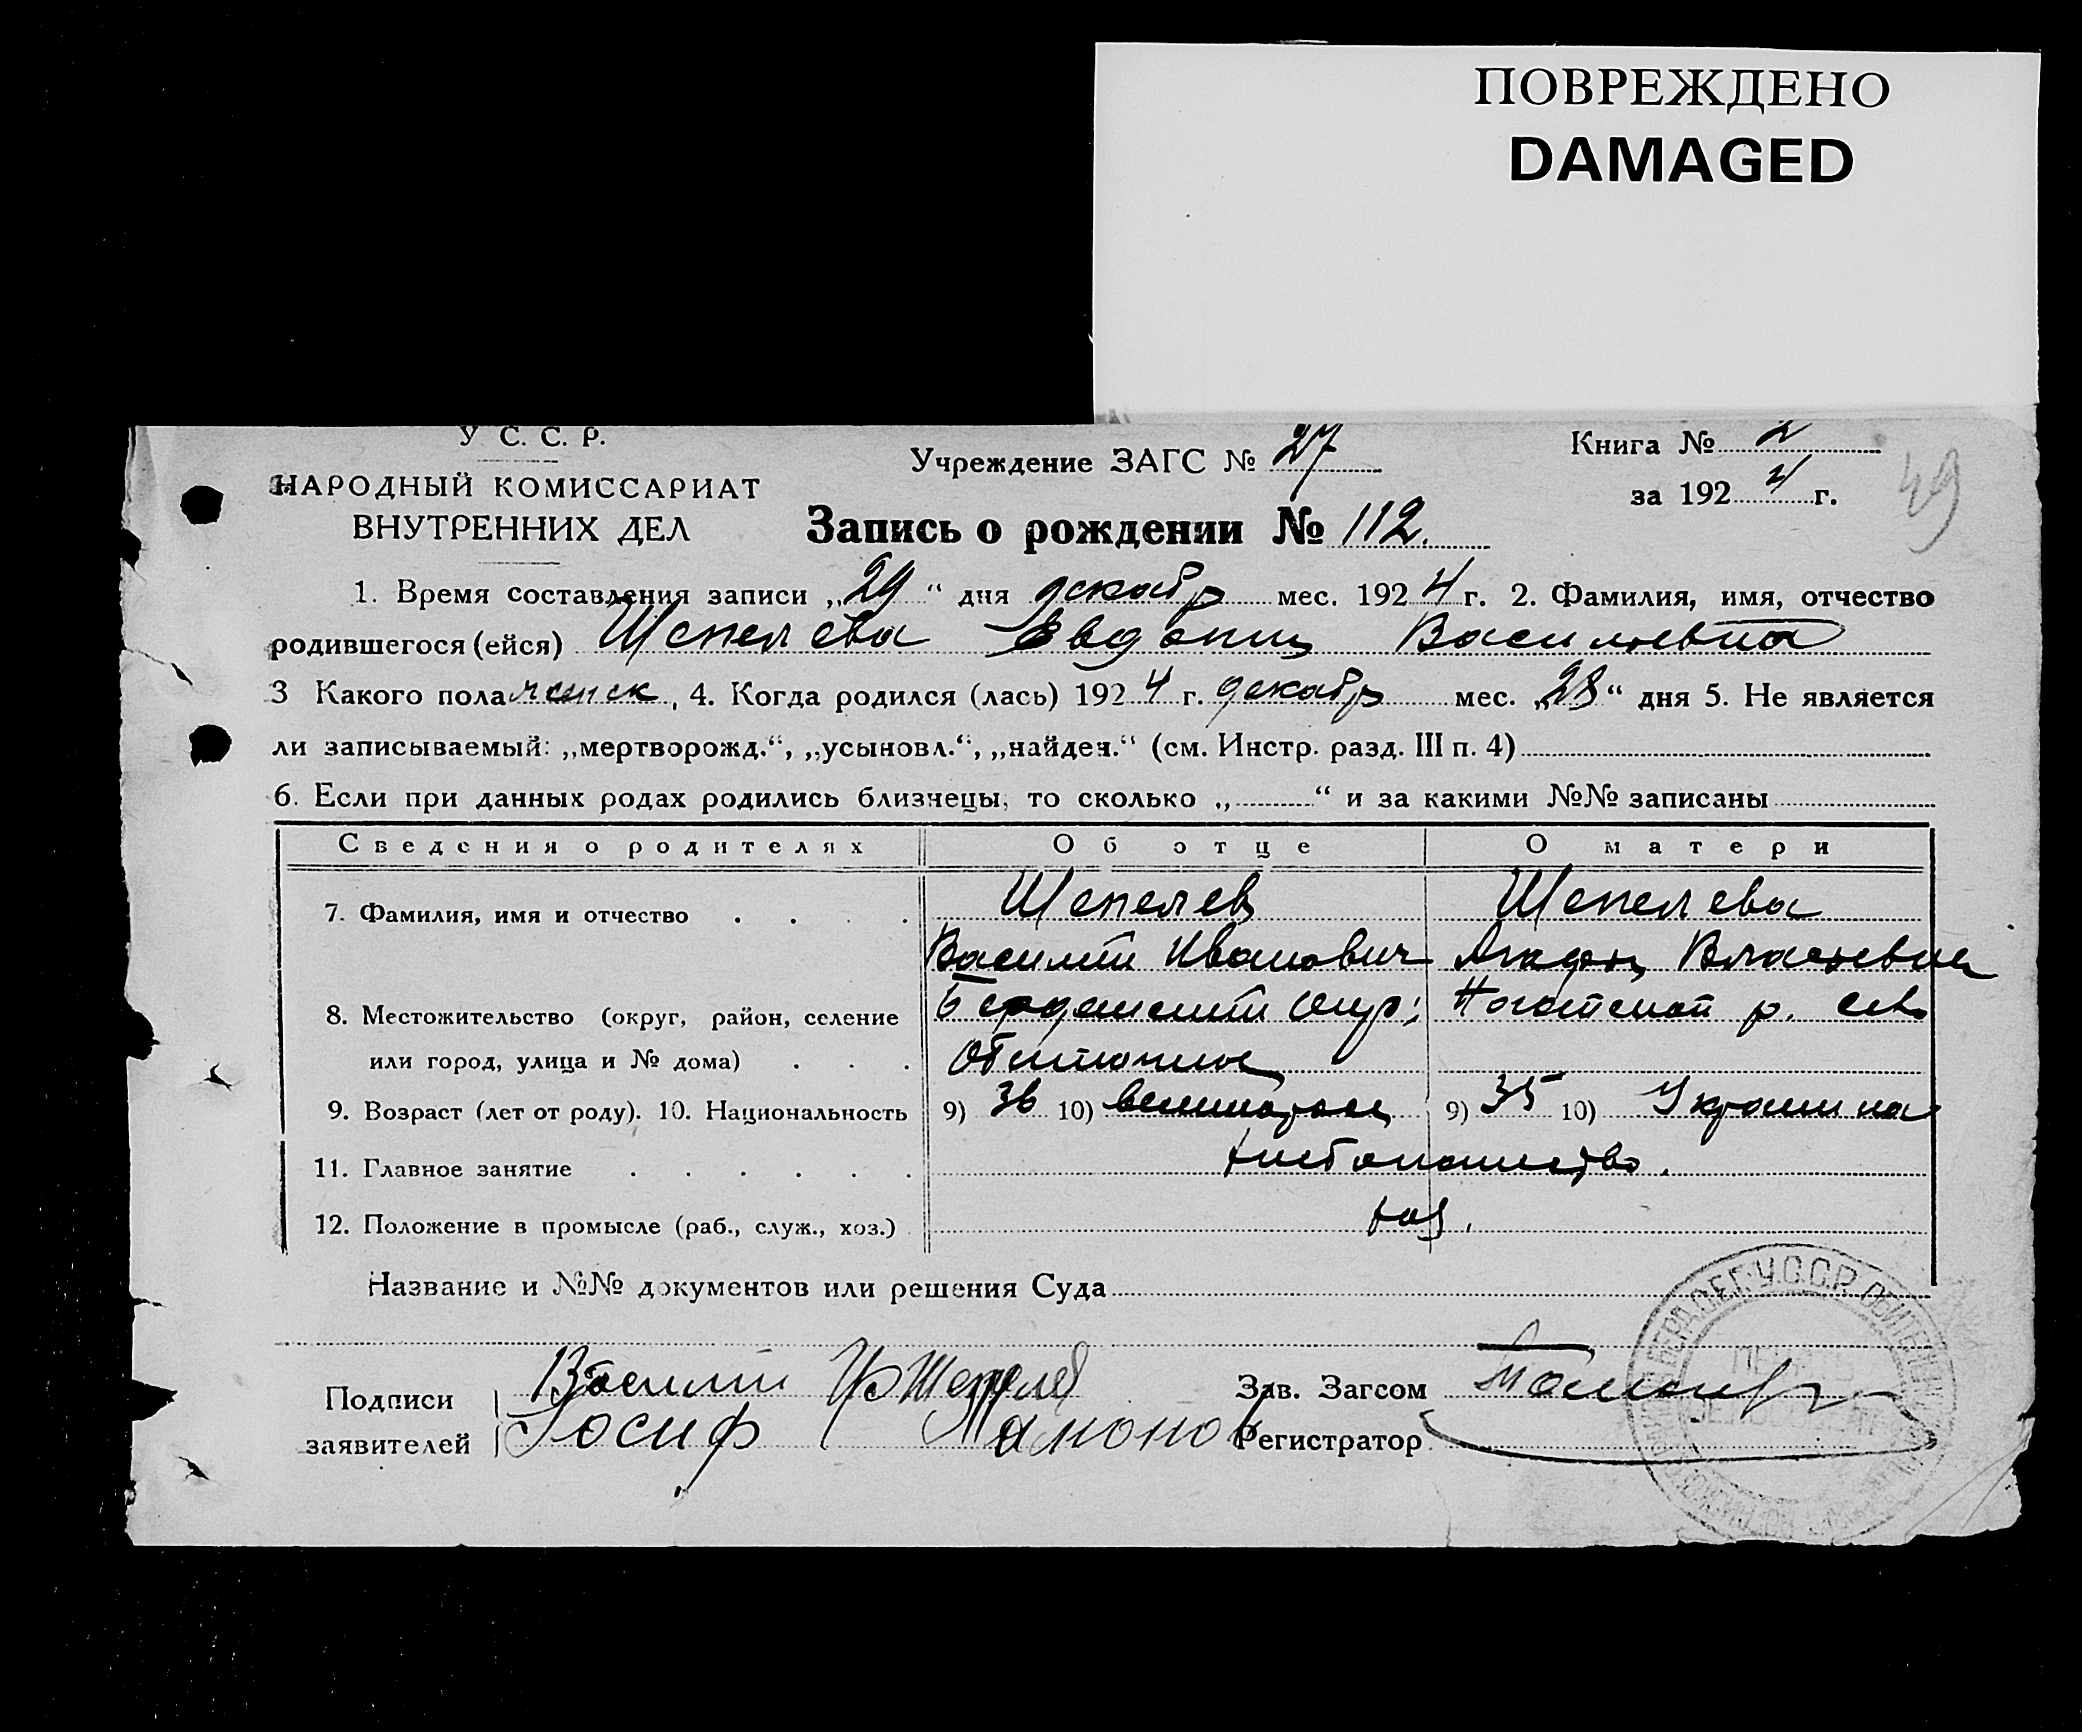 ПОВРЕЖДЕНО
DAMAGED
У С. С. Р.
НАРОДНЫЙ КОМИССАРИАТ
ВНУТРЕННИХ ДЕЛ
Учреждение ЗАГС № 27
Книга № 2
за 1924 г.
49
Запись о рождении № 112.
1. Время составления записи „29“ дня декабр мес. 1924 г. 2. Фамилия, имя, отчество
родившегося (ейся) Шепелева Евдокия Васильевна
3 Какого пола женск, 4. Когда родился (лась) 1924 г. декабр мес. „28“ дня 5. Не является
ли записываемый: „мертворожд.“, „усыновл.“, „найден.“ (см. Инстр. разд. III п. 4)
6. Если при данных родах родились близнецы, то сколько „ “ и за какими №№ записаны
Сведения о родителях Об отце О матери
7. Фамилия, имя и отчество Шепелев Шепелева
Василий Иванович Власьевна
8. Местожительство (округ, район, селение Бердянский окр; Ногайской р. село
или город, улица и № дома) Обиточное
9. Возраст (лет от роду). 10. Национальность 9) 36 10) великоросс 9) 35 10) Украинка
11. Главное занятие хлебопашество.
12. Положение в промысле (раб., служ., хоз.) хоз.
Название и №№ документов или решения Суда
Подписи Василий Ив Шепелев Зав. Загсом
заявителей Иосиф Мамонов Регистратор